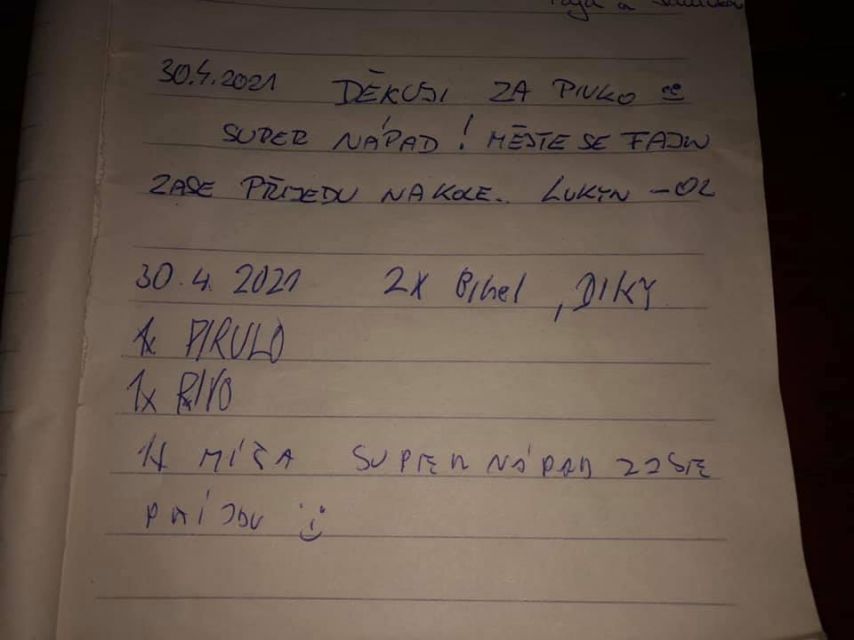 30.4.2021 DĚKUJI ZA PIVKO
SUPER NÁPAD! MĚJTE SE FAJN
ZASE PŘIJEDU NA KOLE. LUKYN -OL
30.4.2021 2x Birel, DIKY
1x PIRULO
1x PIVO
1x MÍŠA SUPER NÁPAD ZASE
PŘÍJDU :)